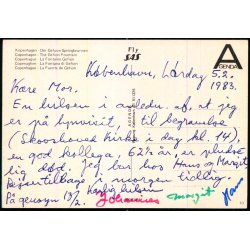 København - Den Gefion Springbrunnen
Copenhagen - The Gefion Fountain
Copenhague - La Fontaine Gefion
Copenaghen - La Fontana di Gefion
Copenhague - La Fuente de Gefion
Fly
SAS
AGENDA
København, Lørdag 5.2.
1983.
Kære Mor.
En hilsen i anledn. af, at jeg
er på byvisit, til begravelse
(Skovshoved Kirke i dag kl. 14),
en god kollega, 62½ år, er pludse
lig død. Jeg bor hos Hans og Margit
Rejser tilbage i morgen tidlig.
På gensyn 13/2. Kærlig hilsen
Johannes Margit Hans